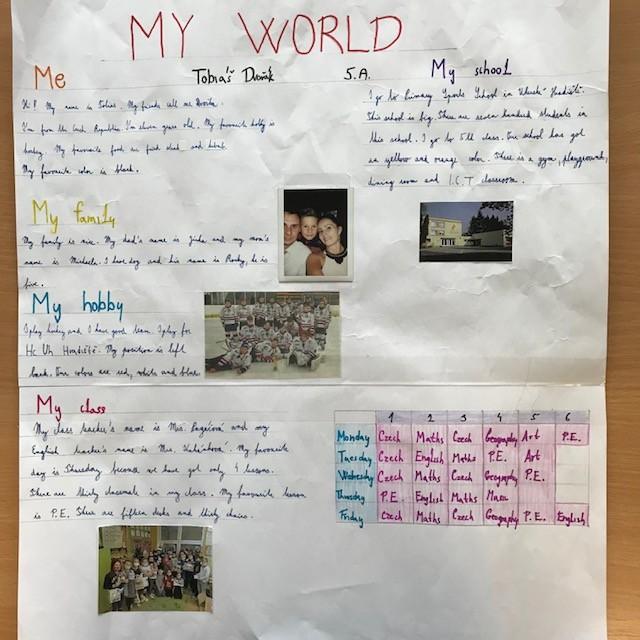 MY WORLD
Me
Tobiáš Dvořák 5.A.
My name is Tobias. My friends call me
I'm from the Czech Republic. I'm eleven years old. My favourite hobby is
hockey. My favourite food is fried steak and
My favourite color is black.
My school
I go to Primary Sports School in Uherské Hradiště.
This school is big. There are seven hundred students in
this school. I go to 5th class. Our school has got
an yellow and orange color. There is a gym, playground,
dining room and I.C.T classroom.
My family
My family is nice. My dad's name is Jirka and my mom's
name is Michaela. I have dog and his name is Rocky, he is
five.
My hobby
I play hockey and I have good team. I play for
Hc Uh Hradiště. My position is left
back. Our colors are red, white and blue.
My class
My class teacher's name is Mrs. and my
English teacher's name is Mrs. My favourite
day is Thursday because we have got only 4 lessons.
There are thirty classmate in my class. My favourite lesson
is P.E. There are fifteen desks and thirty chairs.
1 2 3 4 5 6
Monday Czech Maths Czech Geography Art P.E.
Tuesday Czech English Maths P.E. Art
Wednesday Czech Maths Czech Geography P.E.
Thursday P.E. English Maths Music
Friday Czech Maths Czech Geography P.E. English